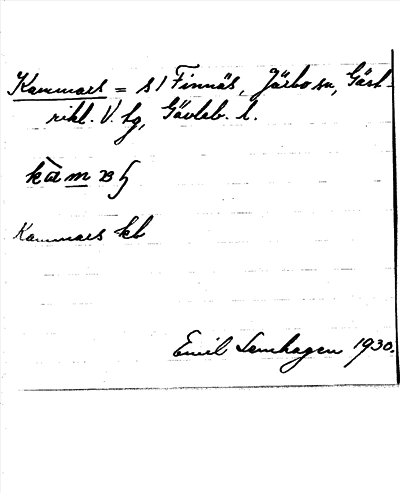 Kammars = s / Finnäs, Järbo sn, Gäst-
rikl. V. tg, Gävleb. l.
Kammars kb
Emil Lamhagen 1930.